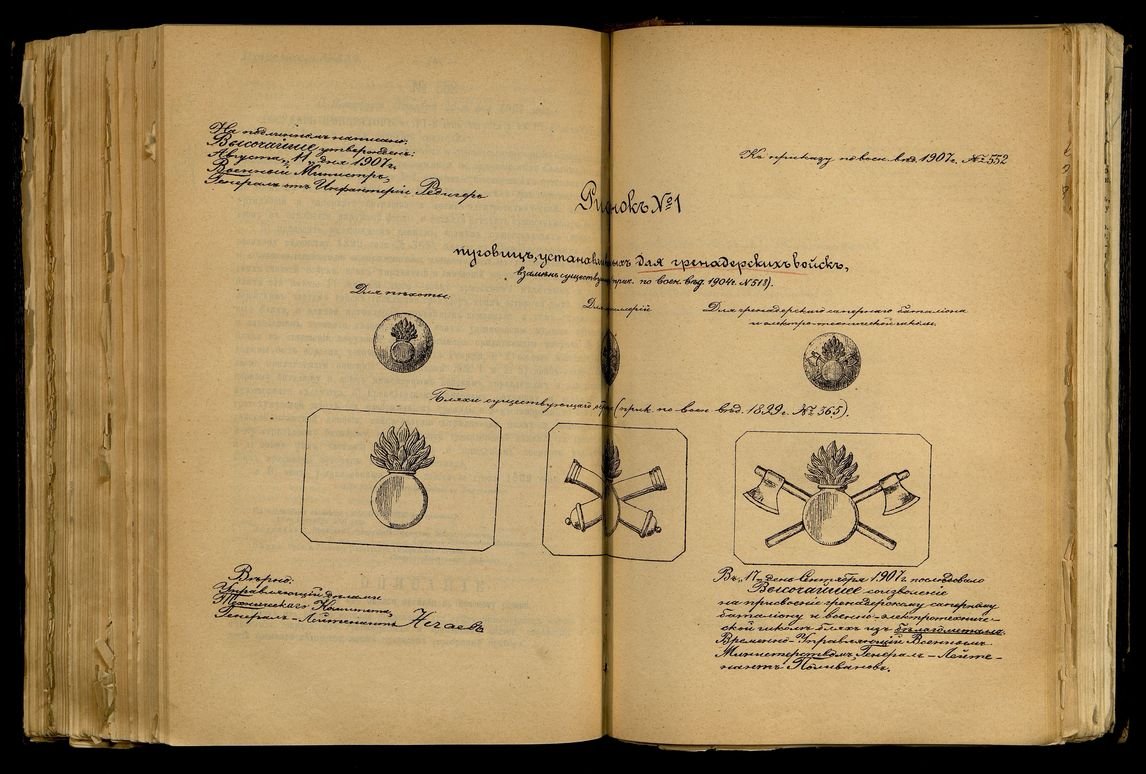 На подлинномъ написано:
Высочайше утвержденъ:
Августа „11„ дня 1907г.
Военный Министръ,
Генералъ отъ Инфантеріи Редигеръ
Къ приказу по воен. вѣд. 1907г. №552
Рисунокъ №1
пуговицъ, установ ныхъ для гренадерскихъ войскъ,
взамѣнъ существую прик. по воен. вѣд. 1904г. №518).
Для пѣхоты:
Для иллеріи
Для гренадерскаго сапернаго баталіона
и электротехнической школы.
Бляхи существующаго обр (прик. по воен. вѣд. 1899г. №365).
Вѣрно:
Управляющій дѣлами
Техническаго Комитета,
Генералъ-Лейтенантъ Нечаевъ
Въ „17„ день Сентября 1907г. послѣдовало
Высочайшее соизволеніе
на присвоеніе гренадерскому саперному
баталіону и военно-электротехниче-
ской школѣ бляхъ изъ бѣлаго металла.
Временно-Управляющій Военнымъ
Министерствомъ, Генералъ-Лейте-
нантъ Поливановъ.